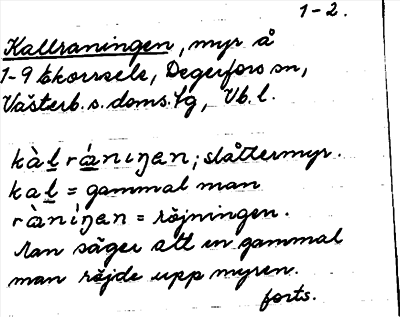 1-2.
Kallraningen, myr å
1-9 Ekorrsele, Degerfors sn,
Västerb. s. doms. lg, Vb. l.
kàl rá̀niŋen; slåttermyr.
kal = gammal man
rà̀níŋen = röjningen.
Man säger att en gammal
man röjde upp myren.
forts.